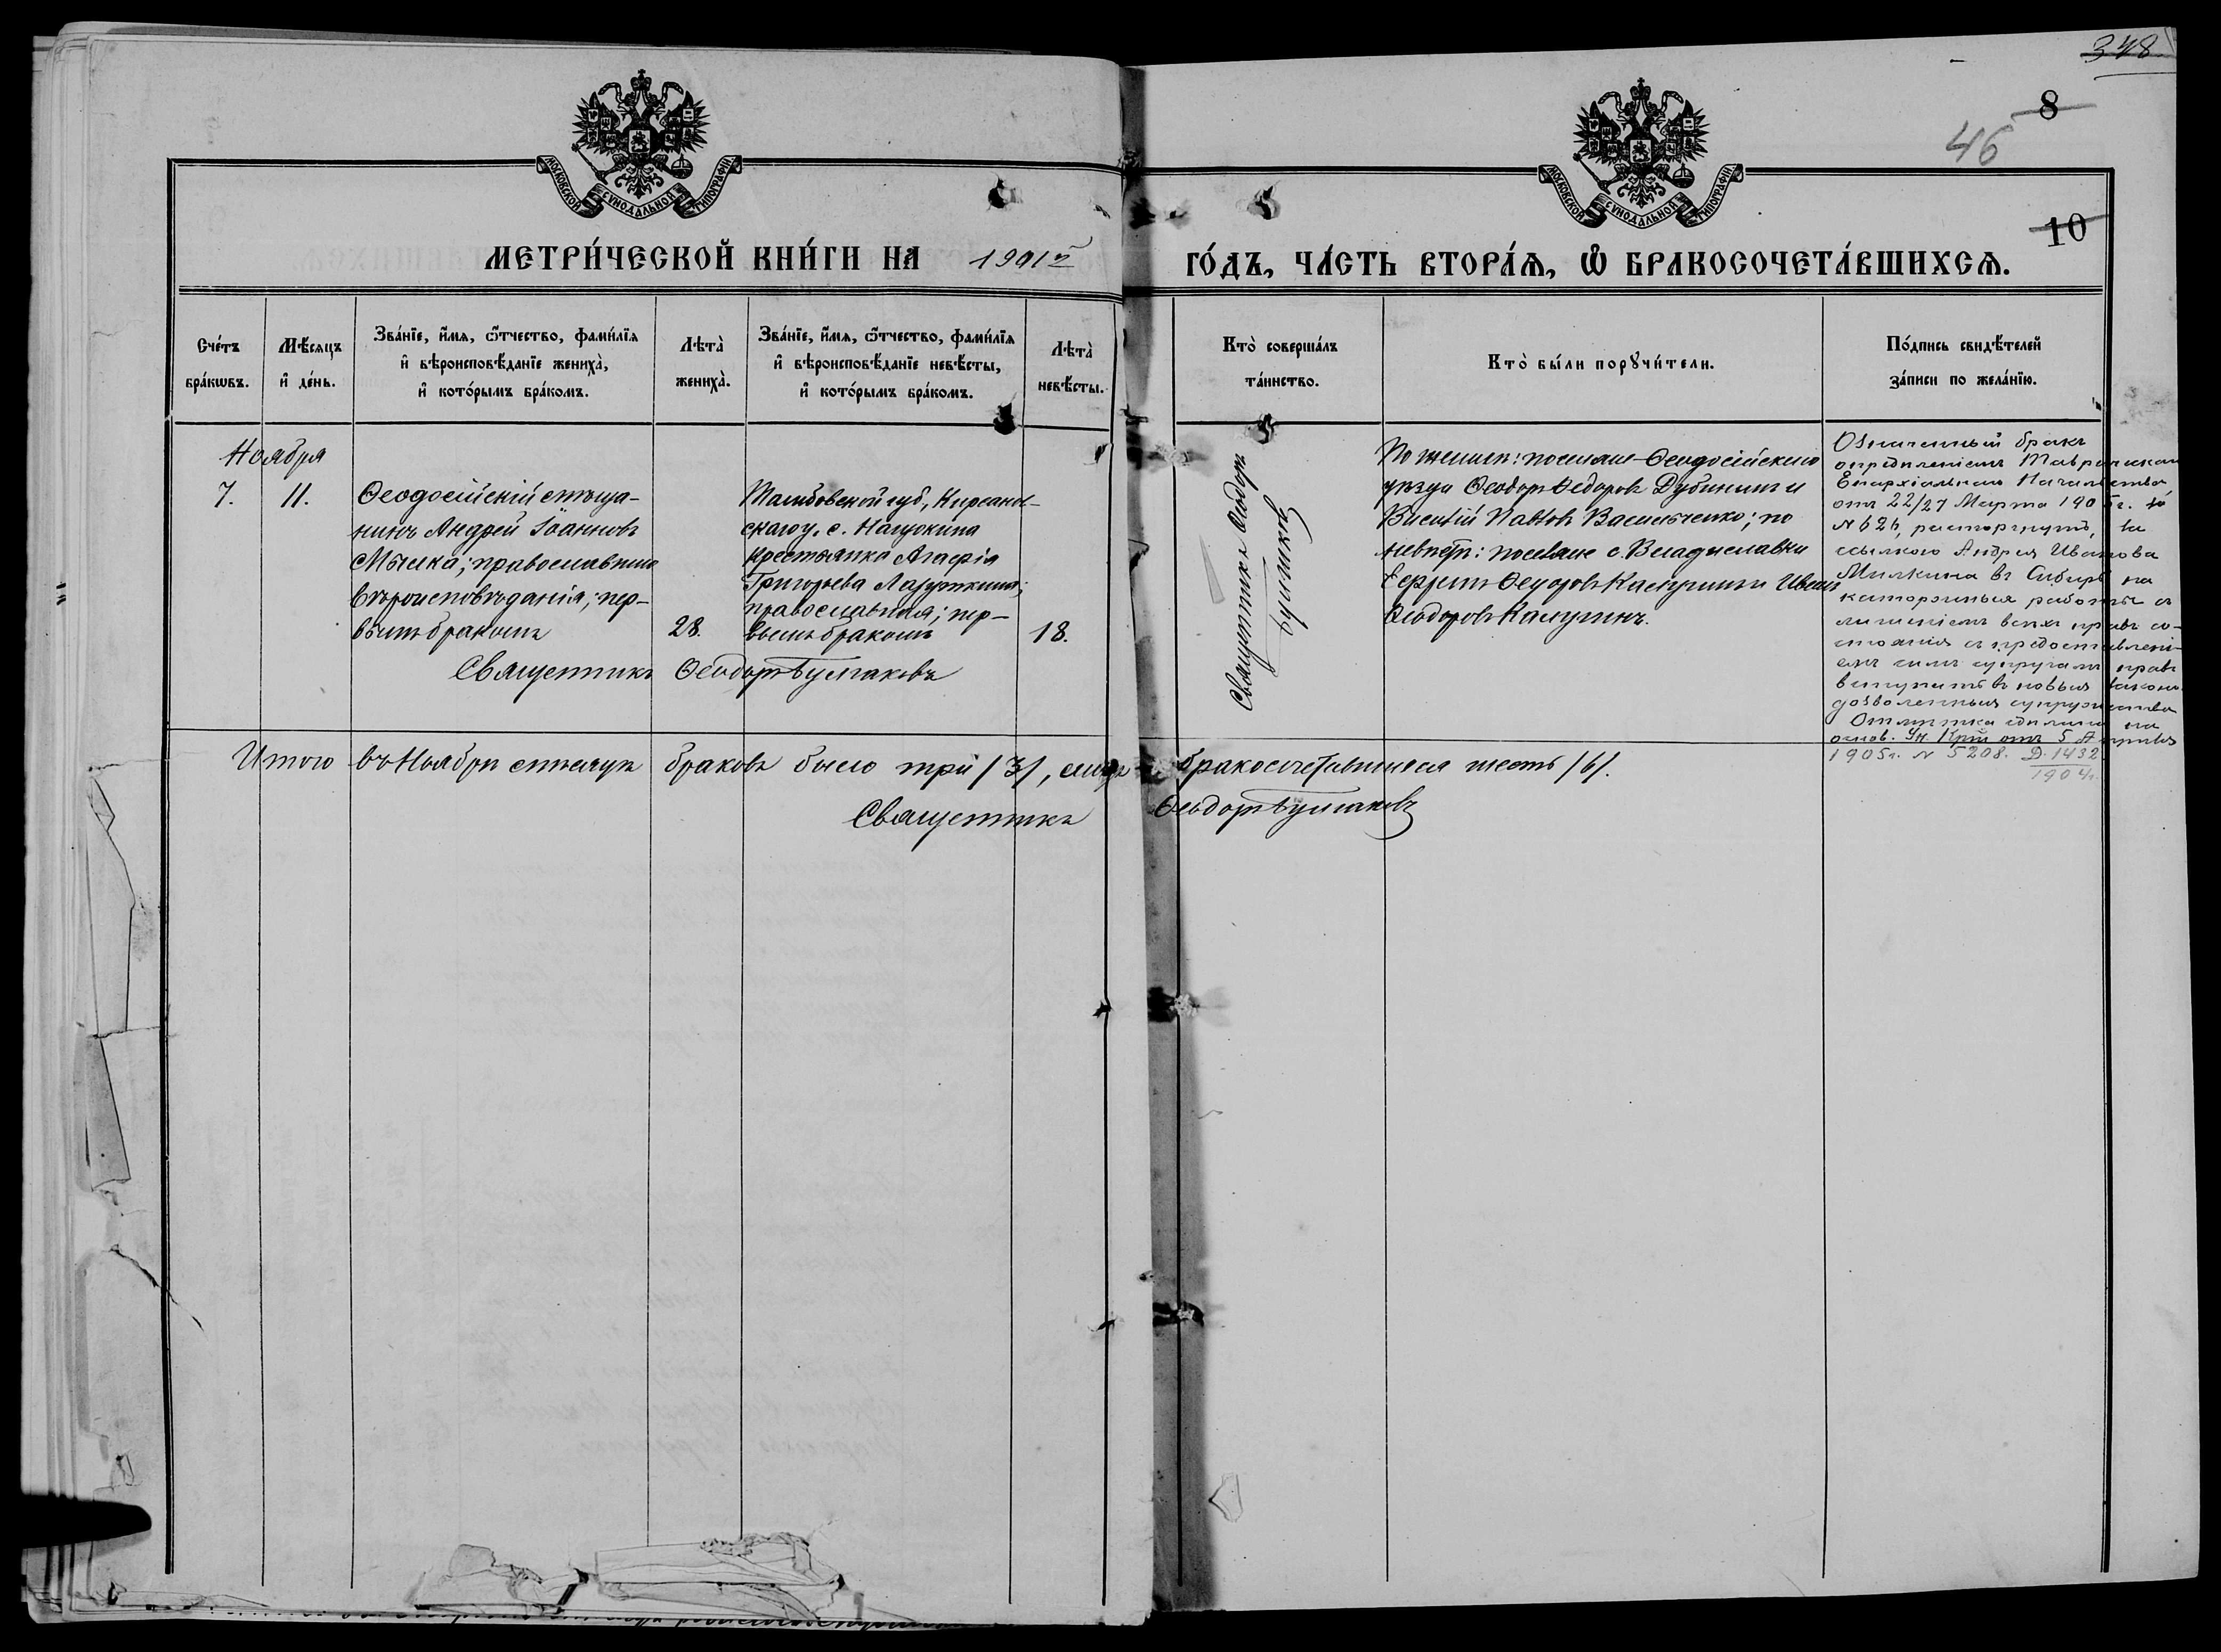 348
8
46
10
МОСКОВСКОЙ СУНОДАЛЬНОЙ ТИПОГРАФІИ
МОСКОВСКОЙ СУНОДАЛЬНОЙ ТИПОГРАФІИ
МЕТРИ́ЧЕСКОЙ КНИ́ГИ НА 1901 г.
ГО́ДЪ, ЧА́СТЬ ВТОРА́Ѧ, Ѡ БРАКОСОЧЕТА́ВШИХСѦ.
Сче́тъ
бра́кѡвъ.
Мѣ́сяцъ
и҆ де́нь.
Зва́нїе, и҆́мѧ, ѻ҆́тчество, фами́лїѧ
и҆ вѣроисповѣ́данїе жениха̀,
и҆ кото́рымъ бра́комъ.
Лѣта̀
жениха̀.
Зва́нїе, и҆́мѧ, ѻ҆́тчество, фами́лїѧ
и҆ вѣроисповѣ́данїе невѣ́сты,
и҆ кото́рымъ бра́комъ.
Лѣта̀
невѣ́сты.
Кто̀ соверша́лъ
та́инство.
Кто̀ бы́ли порꙋчи́тели.
По́дпись свидѣ́телей
за́писи по жела́нїю.
Ноября
7. 11.
Ѳеодосійскій мѣща-
нинъ Андрей Іоанновъ
Мылка; православнаго
вѣроисповѣданія; пер-
вымъ бракомъ
28.
Тамбовской губ., Кирсанов-
скаго у. с. Нащокина
крестьянка Агафія
Григорьева Лазуткина;
православная; пер-
вымъ бракомъ
18.
Священникъ Ѳеодоръ Булгаковъ
Священникъ Ѳеодоръ
Булгаковъ
По женихѣ: поселяне Ѳеодосійскаго
уѣзда Ѳеодоръ Ѳедоровъ Дубининъ и
Василій Павловъ Васильченко; по
невѣстѣ: поселяне с. Владиславки
Ефремъ Ѳеодоровъ Калугинъ и Иванъ
Ѳеодоровъ Калугинъ.
Означенный бракъ
опредѣленіемъ Таврическаго
Епархіальнаго Начальства
отъ 22/27 Марта 1905 г. за
№ 626, расторгнутъ, за
ссылкою Андрея Иванова
Милкина въ Сибирь на
каторжныя работы съ
лишеніемъ всѣхъ правъ со-
стоянія съ предоставлені-
емъ симъ супругамъ правъ
вступить въ новыя законо-
дозволенныя супружества
Отмѣтка сдѣлана на
основ. Ук. отъ 5 Апрѣля
1905 г. № 5208. Д. 1432
1904 г.
Итого въ Ноябрѣ мѣсяцѣ браковъ было три /3/, лицъ бракосочетавшихся шесть /6/.
Священникъ Ѳеодоръ Булгаковъ